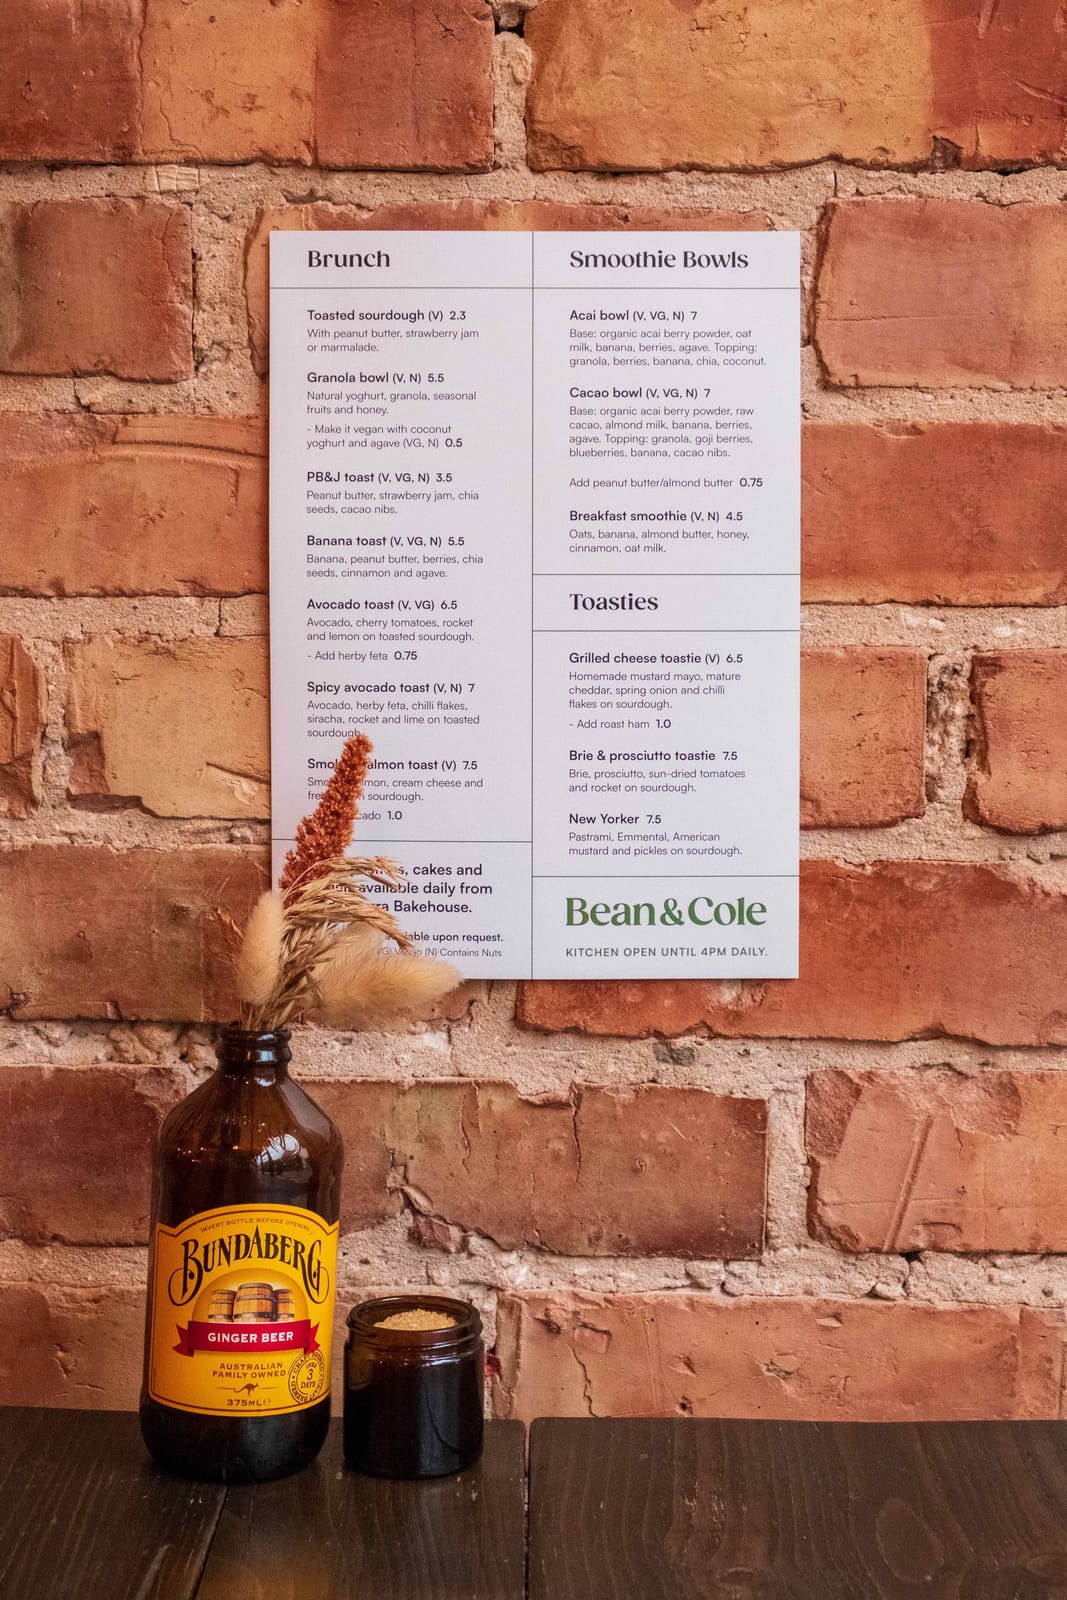 Brunch
Toasted sourdough (V) 2.3
With peanut butter, strawberry jam
or marmalade.
Granola bowl (V, N) 5.5
Natural yoghurt, granola, seasonal
fruits and honey.
- Make it vegan with coconut
yoghurt and agave (VG, N) 0.5
PB&J toast (V, VG, N) 3.5
Peanut butter, strawberry jam, chia
seeds, cacao nibs.
Banana toast (V, VG, N) 5.5
Banana, peanut butter, berries, chia
seeds, cinnamon and agave.
Avocado toast (V, VG) 6.5
Avocado, cherry tomatoes, rocket
and lemon on toasted sourdough.
- Add herby feta 0.75
Spicy avocado toast (V, N) 7
Avocado, herby feta, chilli flakes,
siracha, rocket and lime on toasted
sourdough.
Smoked salmon toast (V) 7.5
Smoked salmon, cream cheese and
on sourdough.
1.0
cakes and
available daily from
Bakehouse.
available upon request.
Vegan (N) Contains Nuts
Smoothie Bowls
Acai bowl (V, VG, N) 7
Base: organic acai berry powder, oat
milk, banana, berries, agave. Topping:
granola, berries, banana, chia, coconut.
Cacao bowl (V, VG, N) 7
Base: organic acai berry powder, raw
cacao, almond milk, banana, berries,
agave. Topping: granola, goji berries,
blueberries, banana, cacao nibs.
Add peanut butter/almond butter 0.75
Breakfast smoothie (V, N) 4.5
Oats, banana, almond butter, honey,
cinnamon, oat milk.
Toasties
Grilled cheese toastie (V) 6.5
Homemade mustard mayo, mature
cheddar, spring onion and chilli
flakes on sourdough.
- Add roast ham 1.0
Brie & prosciutto toastie 7.5
Brie, prosciutto, sun-dried tomatoes
and rocket on sourdough.
New Yorker 7.5
Pastrami, Emmental, American
mustard and pickles on sourdough.
Bean&Cole
KITCHEN OPEN UNTIL 4PM DAILY.
INVERT BOTTLE BEFORE OPENING
BUNDABERG
GINGER BEER
AUSTRALIAN
FAMILY OWNED
375ML℮
CRAFT BREWED
OVER
3
DAYS